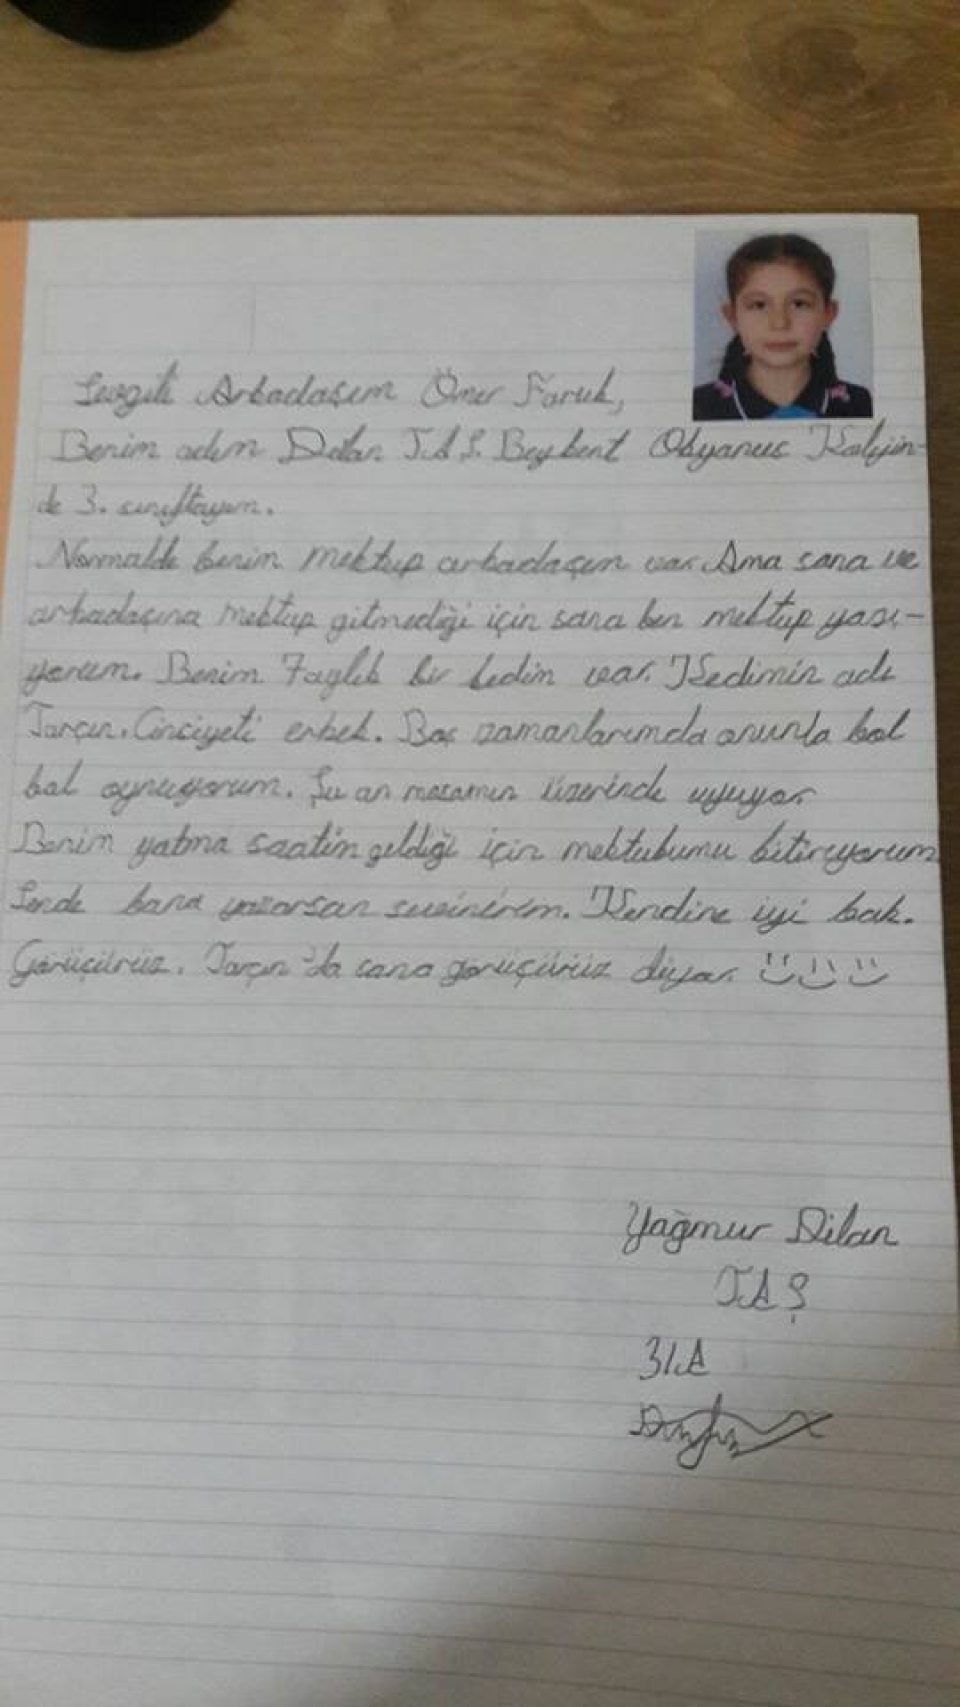 Sevgili Arkadaşım Ömer Faruk,
Benim adım Dilan TAŞ. Beykent Okyanus Kolejin-
de 3. sınıftayım.
Normalde benim mektup arkadaşım var. Ama sana ve
arkadaşına mektup gitmediği için sana ben mektup yazı-
yorum. Benim 7 aylık bir kedim var. Kedimin adı
Tarçın. Cinsiyeti erkek. Boş zamanlarımda onunla bol
bol oynuyorum. Şu an masamın üzerinde uyuyor.
Benim yatma saatim geldiği için mektubumu bitiriyorum
Sende bana yazarsan sevinirim. Kendine iyi bak.
Görüşürüz. Tarçın'da sana görüşürüz diyor.
Yağmur Dilan
TAŞ
3/A